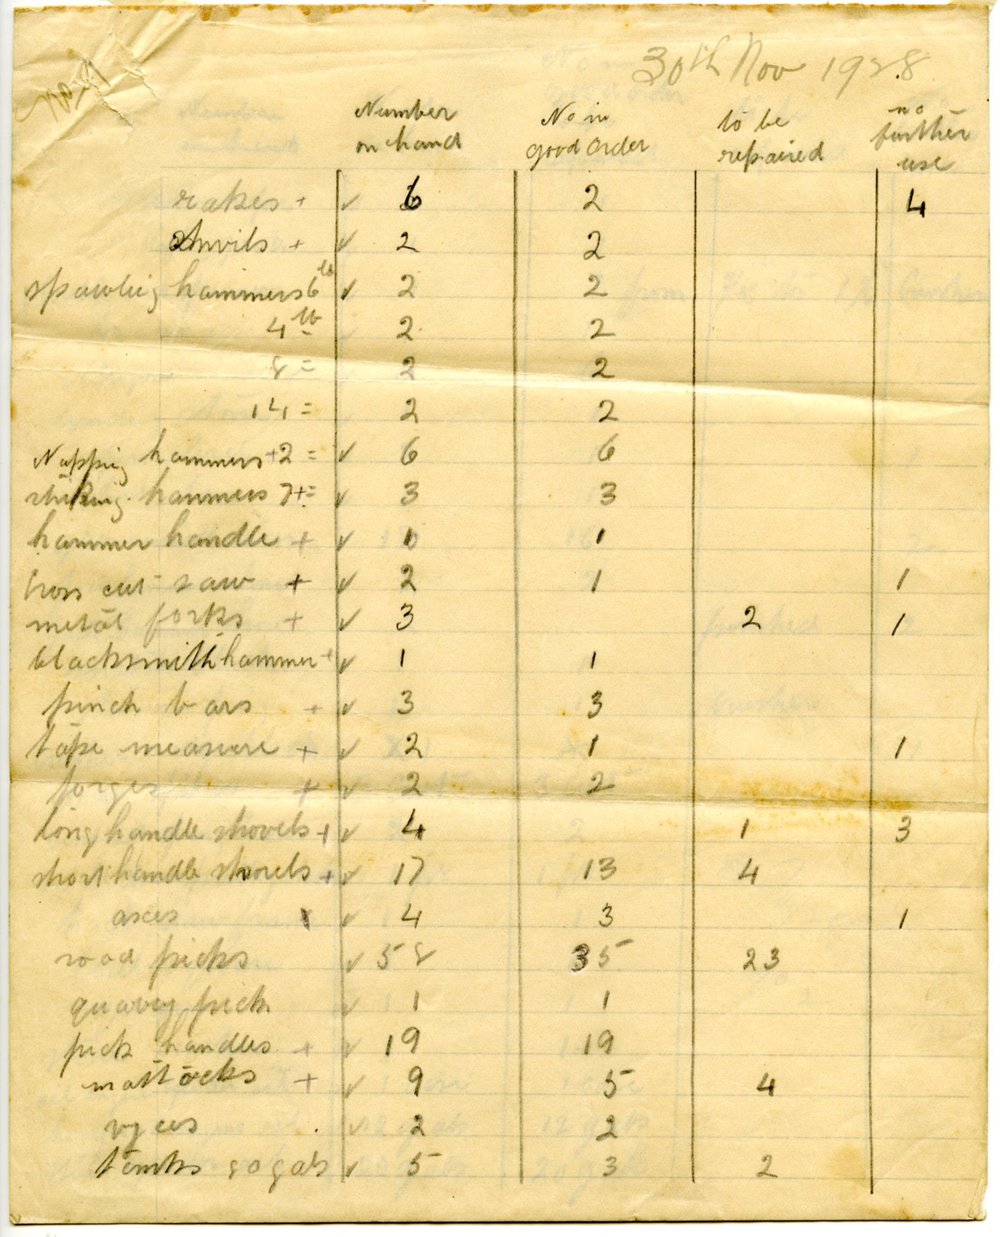 30th Nov 1928
Number on hand | No in good order | to be repaired | no further use
rakes + ✓ 6 2 4
anvils + ✓ 2 2
spawling hammers 6 lb ✓ 2 2
4 lb 2 2
8 = 2 2
14 = 2 2
Napping hammers + 2 = ✓ 6 6
striking hammers 7 + = ✓ 3 3
hammer handle + ✓ 1 1
Cross cut saw + ✓ 2 1 1
metal forks + ✓ 3 2 1
blacksmith hammer + ✓ 1 1
pinch bars + ✓ 3 3
tape measure + ✓ 2 1 1
forges + ✓ 2 2
long handle shovels + ✓ 4 1 3
short handle shovels + ✓ 17 13 4
axes ✓ 4 3 1
road picks ✓ 58 35 23
quarry pick ✓ 1 1
pick handles + ✓ 19 19
mattocks + ✓ 9 5 4
vyces ✓ 2 2
tanks gals ✓ 5 3 2